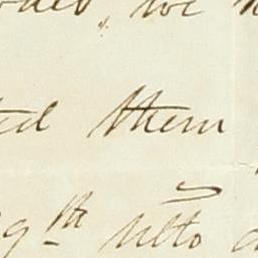 we
ted them
9th Ulto